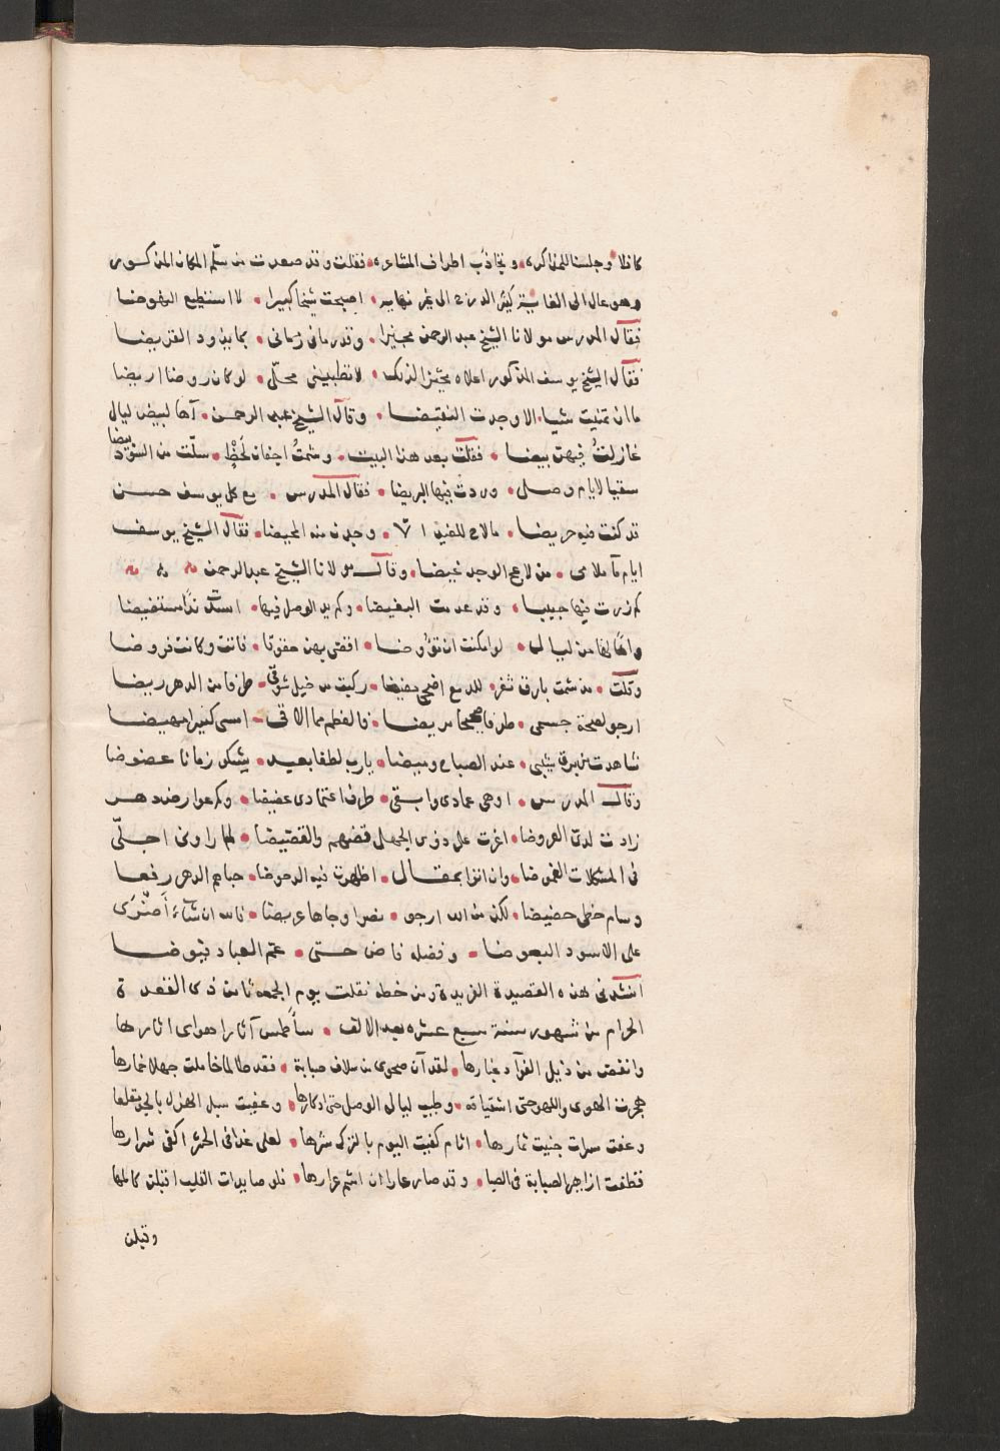 كافلا وجلسنا للمذاكرة ونجاذب اطراف المشاعرة فقلت وقد صعدت من سلّم المكان المذكور
وهو عال الى الغاية كثير الدرج الى غير نهاية اصبحت شيخا كبيرا لا استطيع النهوضا
فقال المدرس مولانا الشيخ عبد الرحمن مجيزا وقد رماني زماني بما يذود القريضا
فقال الشيخ يوسف المذكور اعلاه مجيزا لذلك لا تطبيني محلّ لو كان روضا اريضا
ما ان تمنيت شيا الا وجدت النقيضا وقال الشيخ عبد الرحمن آها لبيض ليال
غازلت فيهن بيضا فقلت بعد هذا البيت وشمتُ اجفان لحظٍ سلّت من السود بيضا
سقيا لايام وصلى وردت فيها البريضا فقال المدرس مع كل يوسف حسن
قد كنت فيه حريضا مالاح للعين الا وجدن منه المحيضا فقال الشيخ يوسف
ايام ماء ملامى من لاعج الوجد غيضا وقال مولانا الشيخ عبد الرحمن
كم زرت فيها حبيبا وقد عدمت البغيضا وكم يد الوصل فيها اسدت ندا مستفيضا
واها لها من ليال لو امكنت ان تؤوضا اقضى بهن حقوقا فاتت وكانت فروضا
وقلت مذ شمت بارق ثغر للدمع اضحى مفيضا ركبت من خيل شوقى طرفا من الدهر ريضا
ارجو لصحة جسمى طرفا صحيحا مريضا فالعظم مما الاقى امسى كسيرا مهيضا
شاهدت من برق شيبى عند الصباح وميضا يارب لطفا بعبد يشكو زمانا عضوضا
وقال المدرس اوهى عمادى وابقى طرف اعتمادى غضيضا وكم عوارض دهر
زادت لدىّ العروضا اغرت على ذوى الجهل قضهم والقضيضا لما راونى اجلّى
فى المشكلات الغموضا وان اتوا بمقال اظهرت فيه الدحوضا حباهم الدهر رفعا
وسام خطى حضيضا لكن من الله ارجو نصرا وجاها عريضا فالله ان شاء أضرى
على الاسود البعوضا وفضله فاض حتى عمّ العباد فيوضا
انشدنى هذه القصيدة الفريدة ومن خطه نقلت يوم الجمعة ثامن ذى القعدة
الحرام من شهور سنة سبع عشره بعد الالف سأطمس آثار اهواى اثارها
وانفض من ذيل الفؤاد غبارها لقد آن صحوى من سلاف صبابة فقد طالما خامرت جهلا خمارها
هجرت الهوى واللهو حتى اشتياقه وطيب ليال الوصل حتى ادكارها وعفيت سبل الهزل بالجد مقلعا
وعفت مسرات جنيت ثمارها اثام كفيت اليوم بالترك شرها لعلى غدا فى الحشر اكفى شرارها
قطفت ازاهير الصبابة فى الصبا وقد صار عارا ان اشم عرارها فلو صايدات القلب اقبلن كالمها
وقبلن